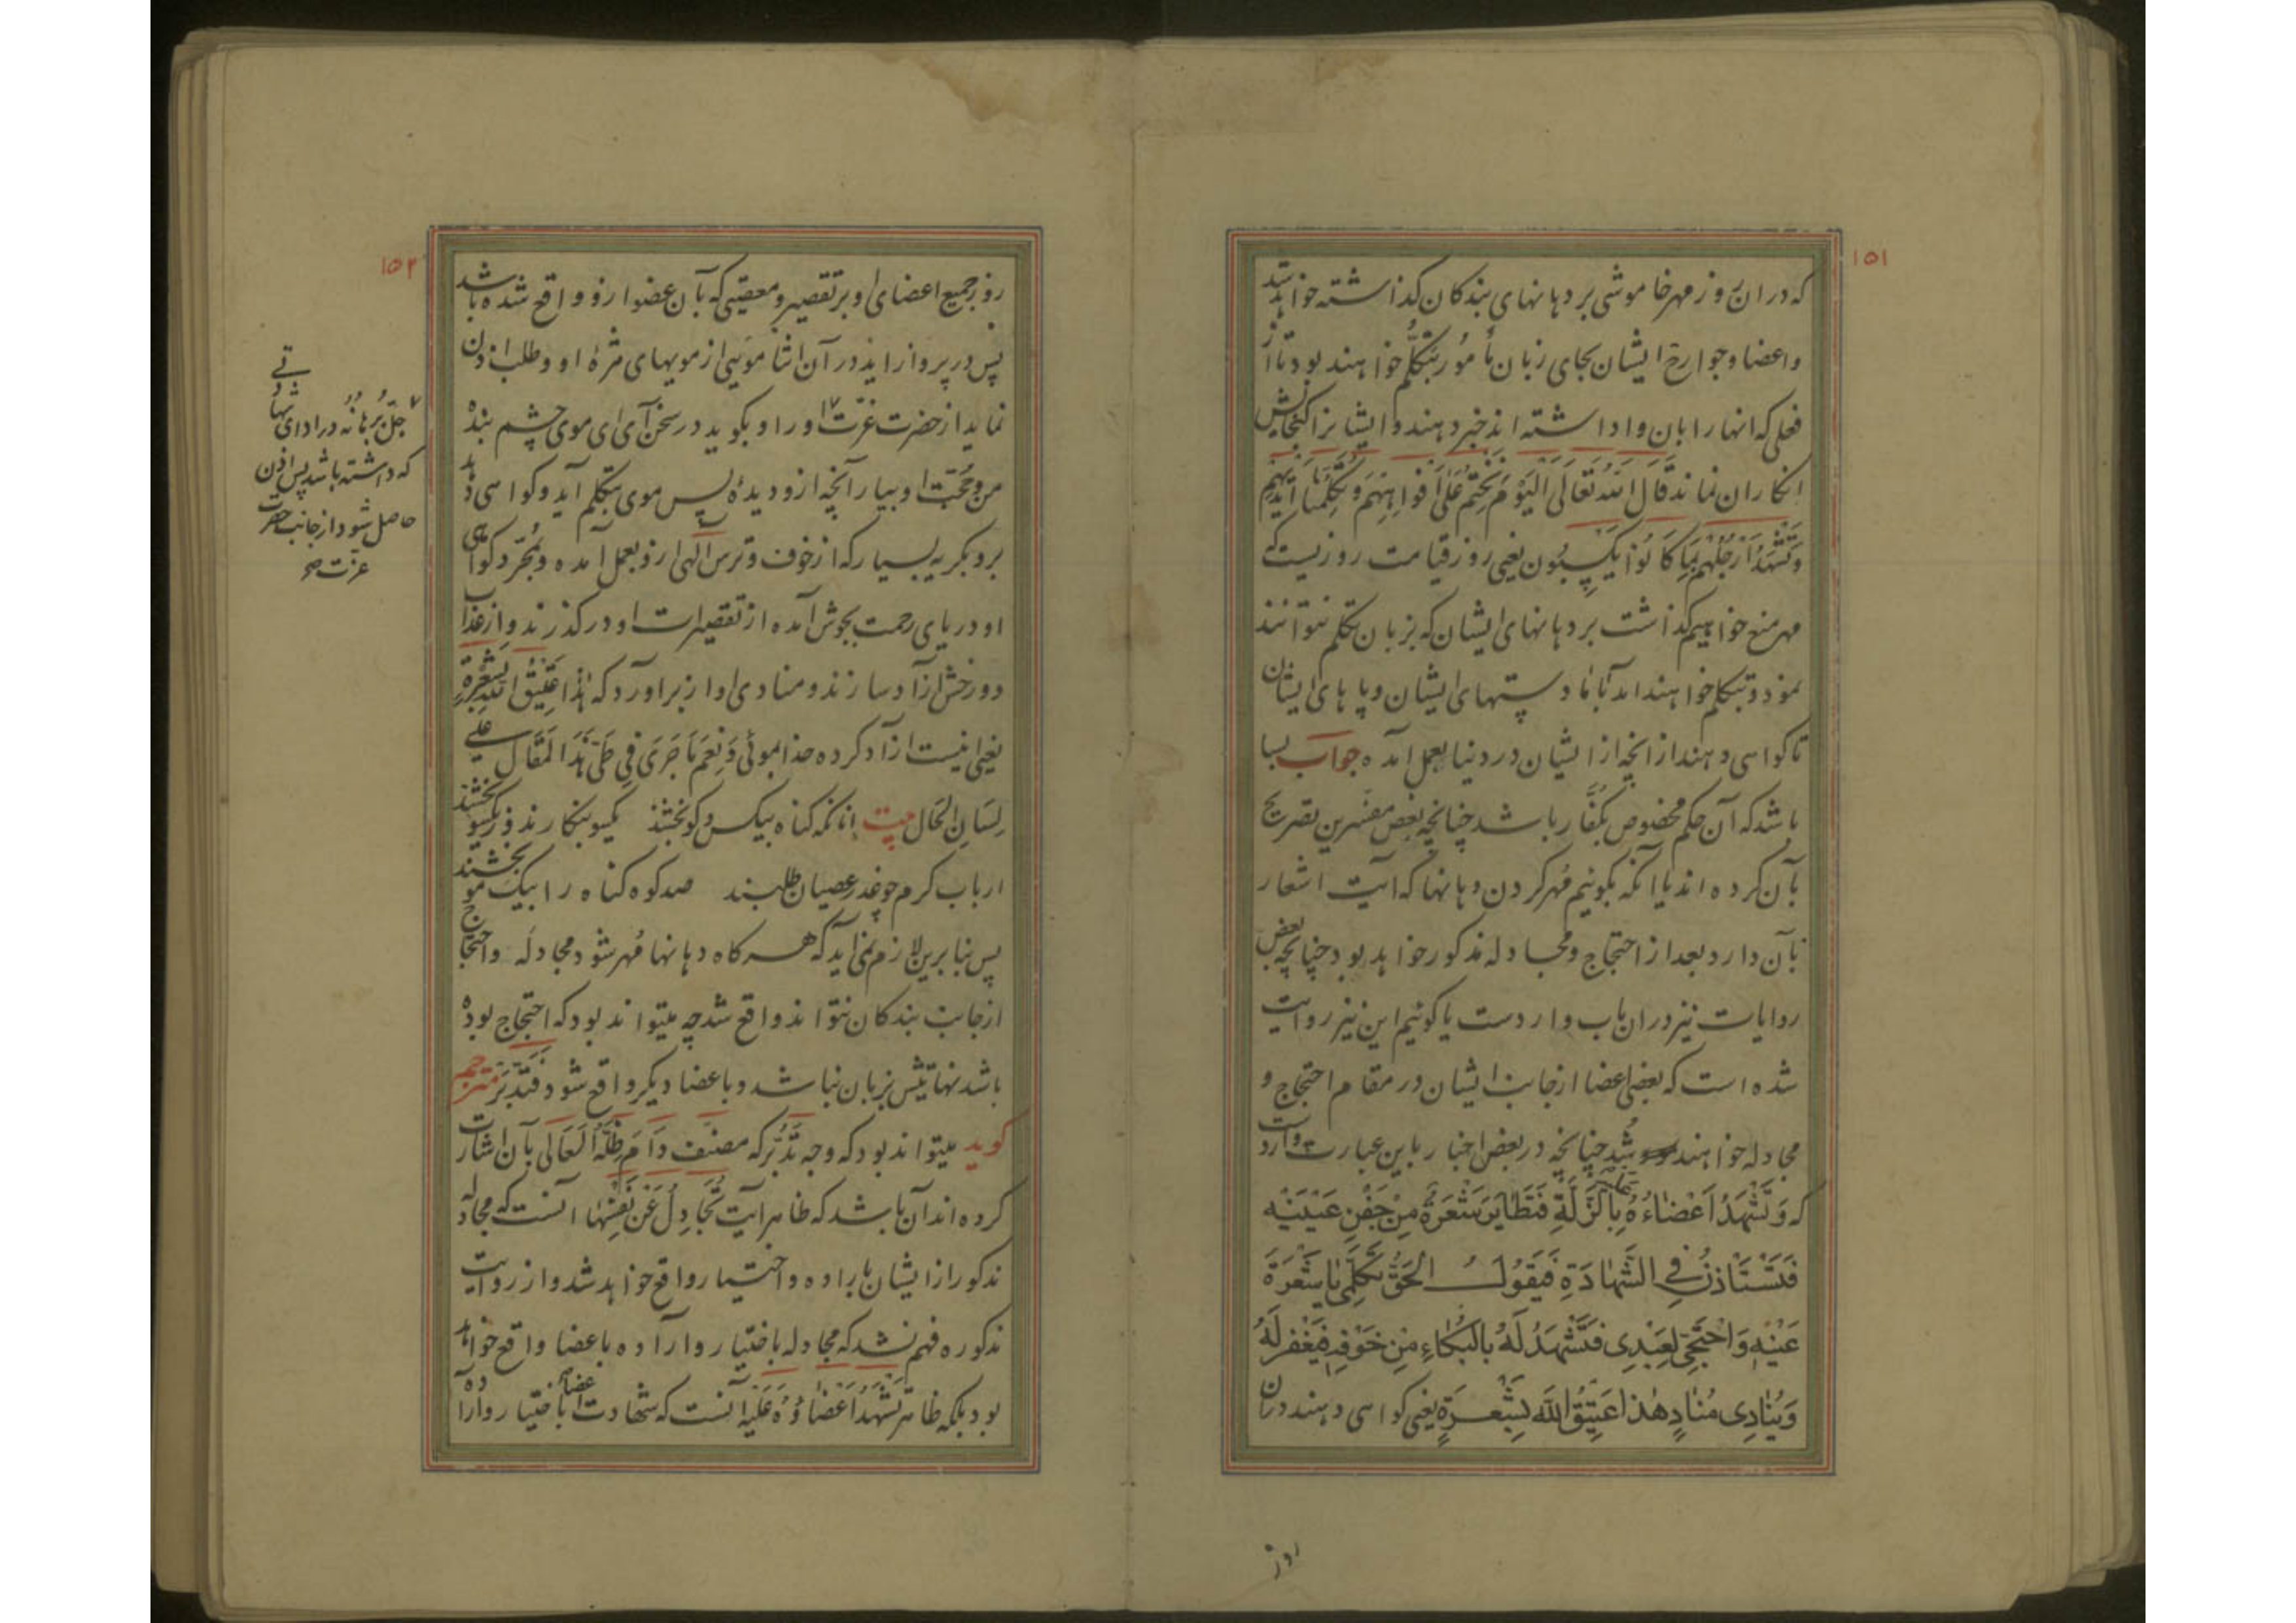 ١٥١
که دران روز مهر خاموشی بر دهانهای بندکان کذاشته خواهد شد
واعضا وجوارح ایشان بجای زبان مأمور بتکلّم خواهند بود تا از
فعلی که انها را بان واداشته اند خبر دهند و ایشانرا کنجایش
انکار ان نماند قال الله تعالی الیوم نختم علی افواههم وتکلمنا ایدیهم
وتشهد ارجلهم بما کانوا یکسبون یعنی روز قیامت روزیست که
مهر منع خواهیم کذاشت بر دهانهای ایشان که بزبان تکلم نتوانند
نمود و بتکلم خواهند امد با ما دستهای ایشان و پاهای ایشان
تا کواهی دهند از انچه از ایشان در دنیا بعمل امده جواب بسا
باشد که آن حکم مخصوص بکفّار باشد چنانچه بعض مفسّرین تصریح
بآن کرده اند یا آنکه بکوئیم مُهر کردن دهانها که آیت اشعار
بآن دارد بعد از احتجاج و مجادله مذکور خواهد بود چنانچه بعض
روایات نیز دران باب واردست یا کوئیم این نیز روایت
شده است که بعضی اعضا از جانب ایشان در مقام احتجاج و
مجادله خواهند شد چنانچه در بعض اخبار باین عبارت وارد است
که وَتَشْهَدُ اَعْضاءُهُ بِالزَّلَّةِ فَتَطایَرَ شَعْرَةٌ مِنْ جَفْنِ عَیْنَیْه
فَتَسْتَاْذِنُ فِی الشَّهادَةِ فَیَقُولُ الْحَقُّ تَکَلَّمِی یا شَعْرَةَ
عَیْنِهِ وَاحْتَجِّی لِعَبْدِی فَتَشْهَدُ لَهُ بِالْبُکاءِ مِنْ خَوْفِهِ فَیَغْفِرُ لَهُ
وَیُنادِی مُنادٍ هٰذا عَتِیقُ اللهِ بِشَعْرَةٍ یعنی کواهی دهند دران
روز
١٥٢
روز جمیع اعضای او بر تقصیر و معصیتی که بآن عضو از و واقع شده باشد
پس در پرواز اید در آن اثنا موئی از مویهای مژهٔ او و طلب اذن
نماید از حضرت عزّت او را و بکوید در سخن آی ای موی چشم بنده
من و حجّت او بیار آنچه ازو دیدهٔ پس موی بتکلم آید و کواهی دهد
برو بکریه بسیار که از خوف و ترس الهی ازو بعمل آمده و بمجرّد کواهی
او دریای رحمت بجوش آمده از تقصیرات او درکذرند و از عذاب
دوزخش آزاد سازند و منادی اواز براورد که هذا عتیق الله بشعرة
یعنی اینست ازاد کرده خدا بموئی وَنِعْمَ مَا جَرَی فِی طَیِّ هَذَا الْمَقَالِ علی
لِسَانِ الْحَالِ بیت انانکه کناه بیکس و کو بخشند یکسو بنکارند و ز یکسو بخشند
ارباب کرم چو عذر عصیان طلبند صد کوه کناه را بیک مو بخشند
پس بنابرین لازم نمی آید که هرکاه دهانها مُهر شود مجادله و احتجاج
از جانب بندکان نتواند واقع شد چه میتواند بود که احتجاج بوده
باشد نهایتش بزبان نباشد و باعضا دیکر واقع شود فتدبّر مترجم
کوید میتواند بود که وجه تدبّر که مصنف دام ظلّه العالی بآن اشارت
کرده اند آن باشد که ظاهر آیت تجادل عن نفسها آنست که مجادله
مذکور از ایشان باراده و اختیار واقع خواهد شد و از روایت
مذکوره فهم نشد که مجادله باختیار و اراده باعضا واقع خواهد
بود بلکه ظاهر تشهد اعضاؤه علیه آنست که شهادت اعضا باختیار و اراده
جلّ برهانه در ادای شهادتی
که داشته باشد پس اذن
حاصل شود از جانب حضرت
عزت صح